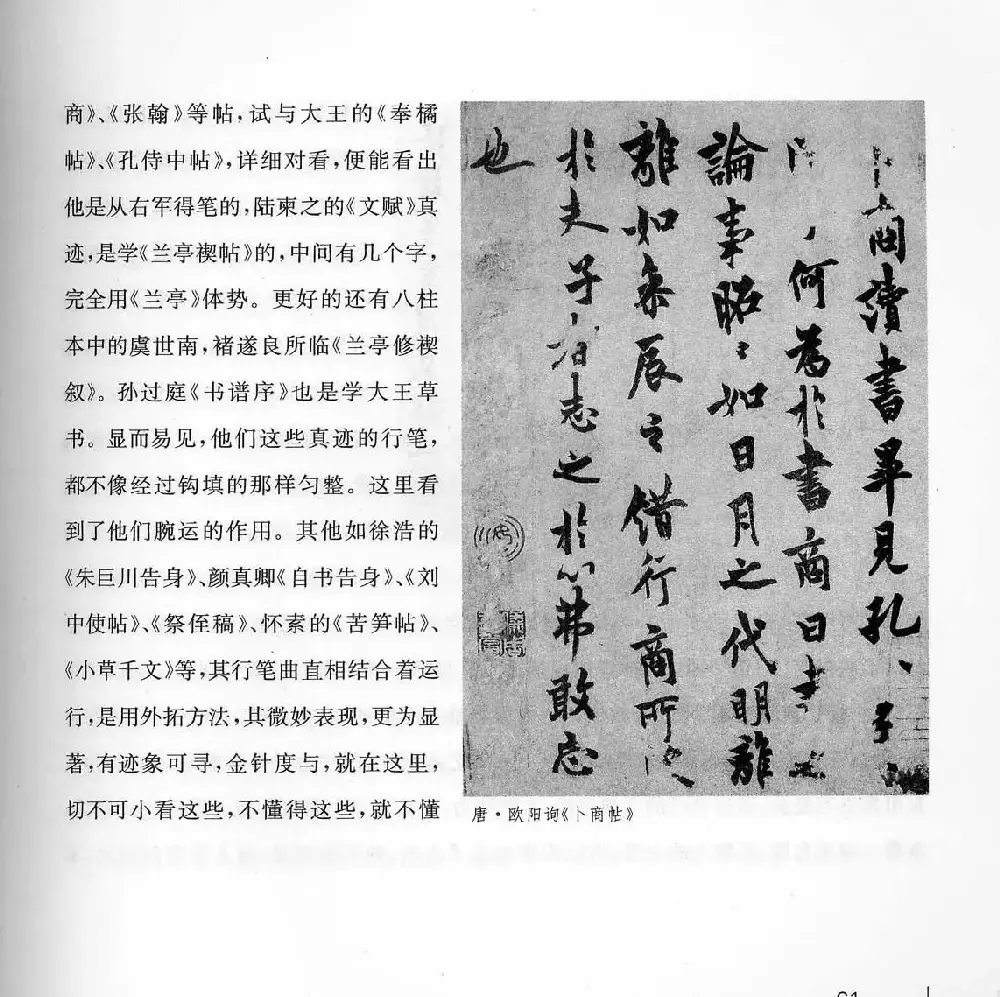 商》、《张翰》等帖，试与大王的《奉橘
帖》、《孔侍中帖》，详细对看，便能看出
他是从右军得笔的，陆柬之的《文赋》真
迹，是学《兰亭禊帖》的，中间有几个字，
完全用《兰亭》体势。更好的还有八柱
本中的虞世南，褚遂良所临《兰亭修禊
叙》。孙过庭《书谱序》也是学大王草
书。显而易见，他们这些真迹的行笔，
都不像经过钩填的那样匀整。这里看
到了他们腕运的作用。其他如徐浩的
《朱巨川告身》、颜真卿《自书告身》、《刘
中使帖》、《祭侄稿》、怀素的《苦笋帖》、
《小草千文》等，其行笔曲直相结合着运
行，是用外拓方法，其微妙表现，更为显
著，有迹象可寻，金针度与，就在这里，
切不可小看这些，不懂得这些，就不懂
卜商讀書畢見孔子
何為於書商曰書
論事昭〻如日月之代明離
離如參辰之錯行商所
於夫子志之於心弗敢忘
也
唐·欧阳询《卜商帖》